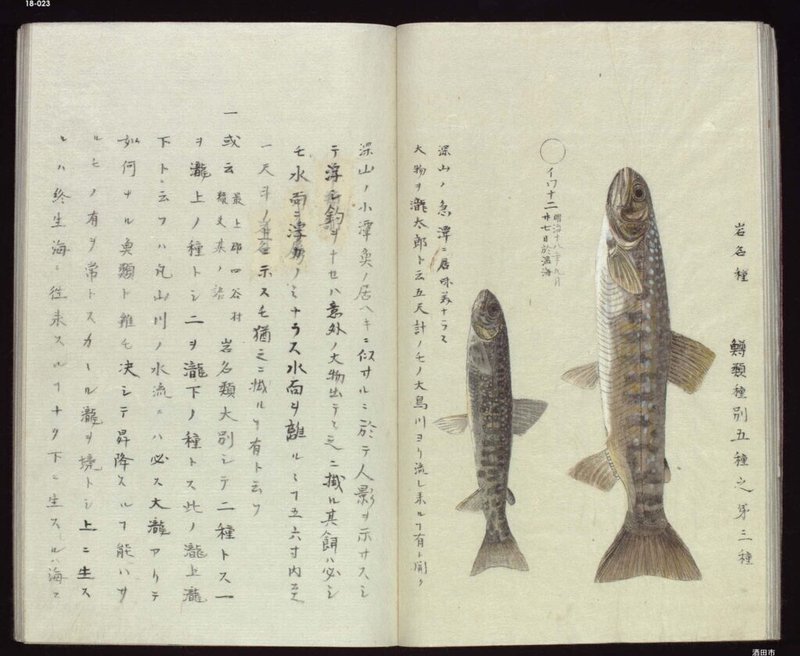 18-023
岩名種　鱒類種別五種之第三種
イワナ二
明治十八年九月
廿七日於温海
深山ノ急潭ニ居味美ナラス
大物ヲ瀧太郎ト云五尺計ノモノ大鳥川ヨリ流レ来ルヿ有ト聞ク
深山ノ小潭魚ノ居ヘキニ似サルニ於テ人影ヲ示サスシ
テ浮シ釣ヲナセハ意外ノ大物出テ之ニ掛ル其餌ハ必シ
モ水面ニ浮ルノミナラス水面ヲ離ルヿ五六寸内至
一尺斗ノ 示スモ猶之ニ掛ルヿ有ト云フ
一或云 最上郡四谷村 岩名類大別シテ二種トス一
ヲ瀧上ノ種トシ二ヲ瀧下ノ種トス此ノ瀧上瀧
下ト云フハ凡山川ノ水流ニハ必ス大瀧アリテ
如何ナル魚類ト雖モ决シテ昇降スルヿ能ハサ
ルモノ有ヲ常トスカヽル瀧ヲ境トシ上ニ生ス
ルハ終生海ニ往来スルヿナク下ニ生スルハ海ニ
酒田市